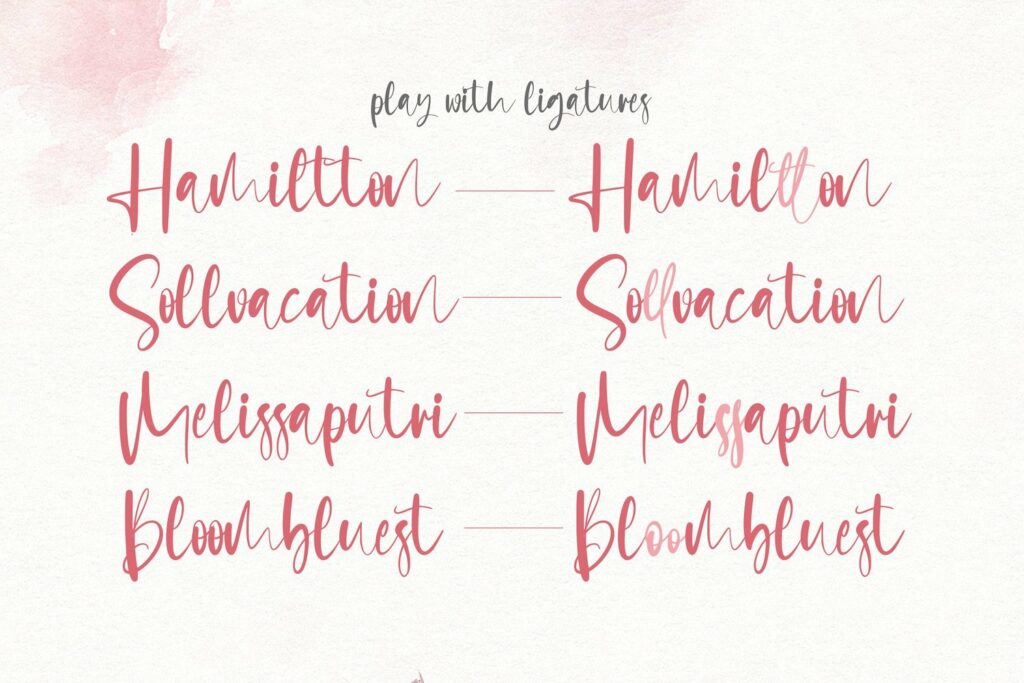 play with ligatures
Hamiltton Hamiltton
Sollvacation Sollvacation
Melissaputri Melissaputri
Bloombluest Bloombluest